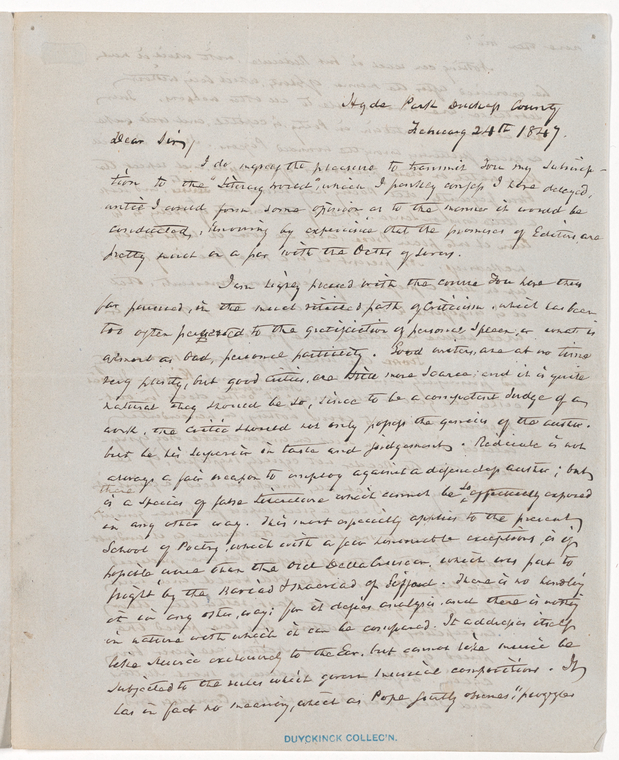 Hyde Park Duchess County
February 24th 1847.
Dear Sir,
I do, myself the pleasure to transmit You my Subscrip-
tion to the "Literary World", which I frankly confess I have delayed,
until I could form some opinion as to the manner it would be
conducted, knowing by experience that the promises of Editors are
pretty much on a par with the Oaths of Lovers.
I am highly pleased with the course You have thus
far pursued, in the much vitiated path of Criticism, which has been
too often perverted to the gratification of personal Spleen, or what is
almost as bad, personal partiality. Good writers are at no time
very plenty, but good Critics, are still more Scarce; and it is quite
natural they should be So, Since to be a competent Judge of any
work, the critic should not only possess the genius of the author.
but be his Superior in taste and judgement. Ridicule is not
always a fair weapon to employ against a defenceless author; but
there
is a Species of false Literature which cannot be So effectually exposed
in any other way. This most especially applies to the present
School of Poetry, which with a few honourable exceptions, is if
possible worse than the Old Della Cruscan, which was put to
flight by the Baviad & Maeviad of Gifford. There is no handling
it in any other way; for it defies analysis, and there is nothing
in nature with which it can be compared. It addresses itself
like Music exclusively to the Ear, but cannot like music be
Subjected to the rules which govern musical compositions. It
has in fact no meaning, which as Pope justly observes, "puzzles
DUYCKINCK COLLEC'N.